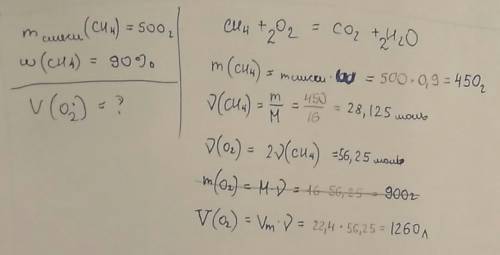 m смеси (CH4) = 500г
ω(CH4) = 90%
V(O2) = ?
CH4 + 2O2 = CO2 + 2H2O
m(CH4) = m смеси · ω = 500 · 0,9 = 450г
ν(CH4) = m/M = 450/16 = 28,125 моль
ν(O2) = 2ν(CH4) = 56,25 моль
m(O2) = M · ν = 16 · 56,25 = 900г
V(O2) = Vm · ν = 22,4 · 56,25 = 1260 л